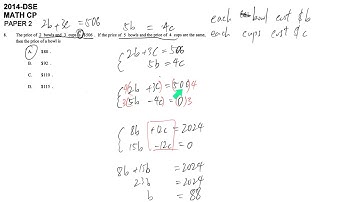 2014-DSE
MATH CP
PAPER 2
2b+3c=506
5b = 4c
each bowl cost $b
each cups cost $c
8. The price of 2 bowls and 3 cups is $506. If the price of 5 bowls and the price of 4 cups are the same,
then the price of a bowl is
A. $88.
B. $92.
C. $110.
D. $115.
2b+3c = 506
5b = 4c
4(2b +3c)=(506)4
3(5b -4c)=(0)3
8b +12c = 2024
15b -12c = 0
8b +15b = 2024
23b = 2024
b = 88